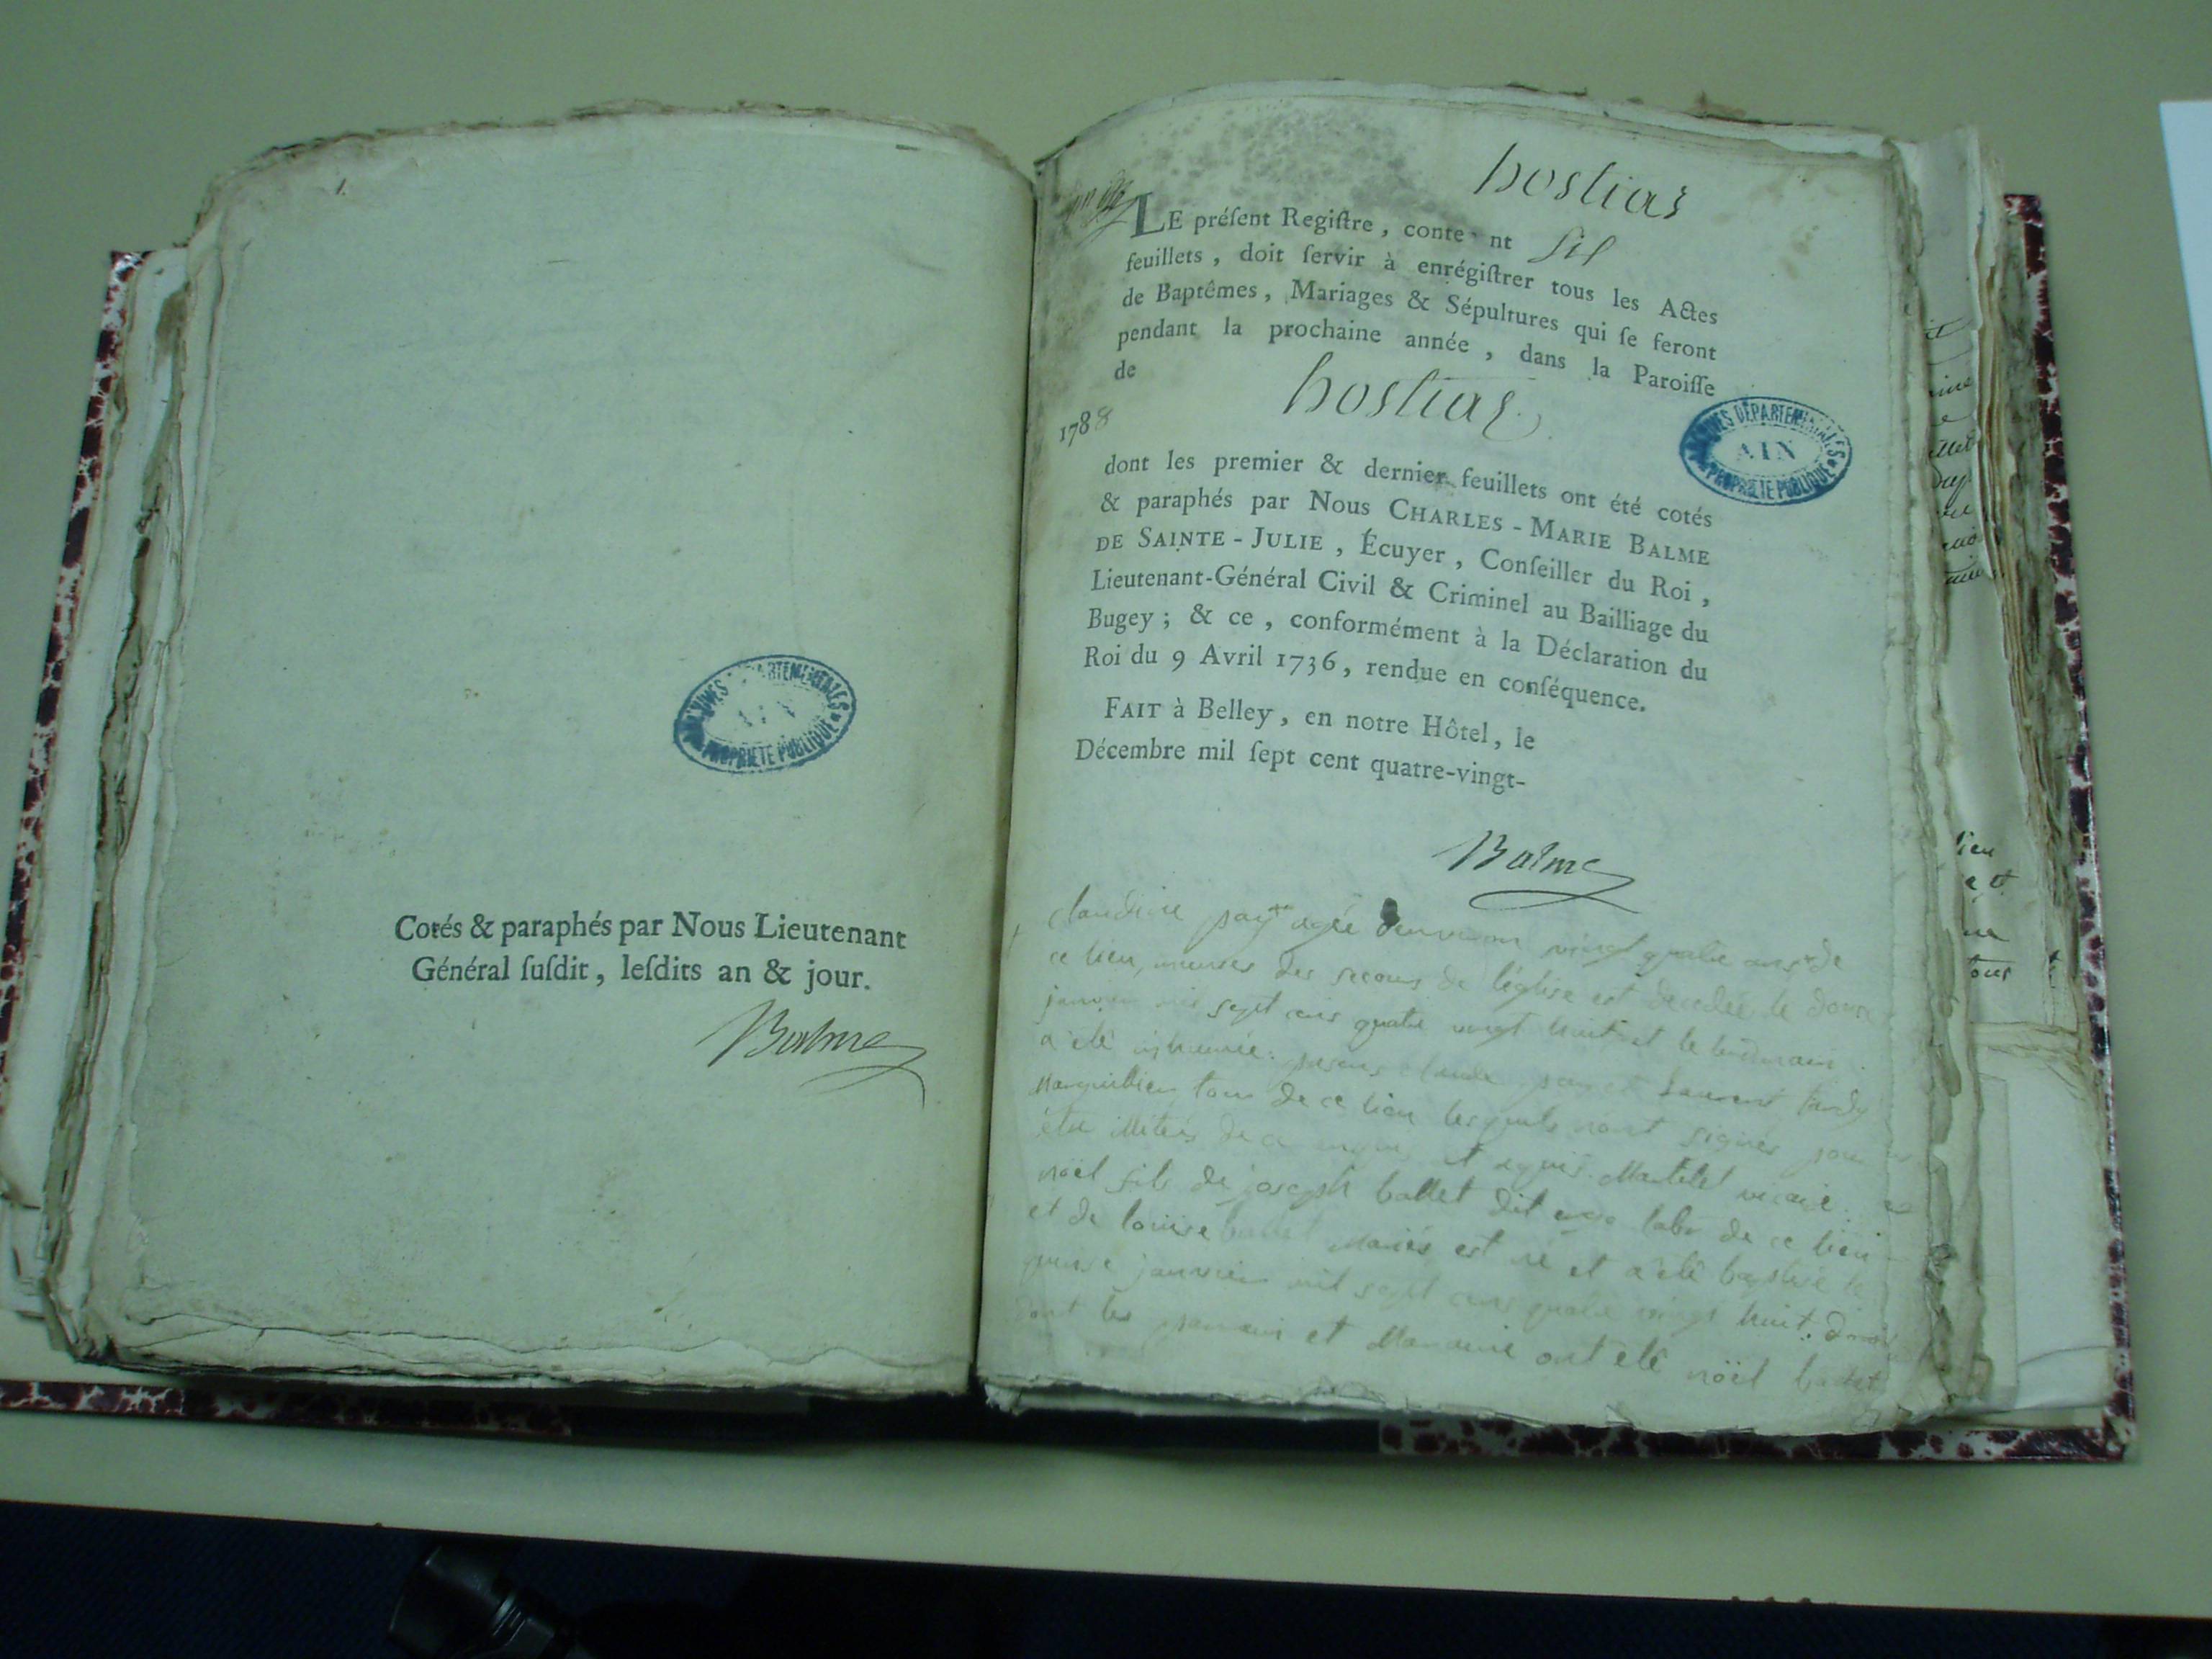 1.
Cotés & paraphés par Nous Lieutenant
Général ſuſdit, leſdits an & jour.
Balme
ARCHIVES DÉPARTEMENTALES
AIN
PROPRIÉTÉ PUBLIQUE
hostias
LE préſent Regiſtre, conte nt six
feuillets, doit ſervir à enrégiſtrer tous les Actes
de Baptêmes, Mariages & Sépultures qui ſe feront
pendant la prochaine année, dans la Paroiſſe
de hostias
1788
ARCHIVES DÉPARTEMENTALES
AIN
PROPRIÉTÉ PUBLIQUE
dont les premier & dernier feuillets ont été cotés
& paraphés par Nous CHARLES-MARIE BALME
DE SAINTE-JULIE, Écuyer, Conſeiller du Roi,
Lieutenant-Général Civil & Criminel au Bailliage du
Bugey; & ce, conformément à la Déclaration du
Roi du 9 Avril 1736, rendue en conſéquence.
FAIT à Belley, en notre Hôtel, le
Décembre mil ſept cent quatre-vingt-
Balme
claudine agée d'environ vingt quatre ans de
ce lieu, munies des secours de l'église est decedée le douze
janvier mil sept cens quatre vingt huit et le lendemain
a été inhumée. presens claude laurent tardy
tous de ce lieu lesquels n'ont signés pour
être illiterés de ce enquis et requis. Martelet vicaire
noël fils de joseph ballet dit labr de ce lieu
et de louise ballet mariés est né et a été baptisé le
quinze janvier mil sept cens quatre vingt huit. dont
les parrain et marraine ont été noël ballet